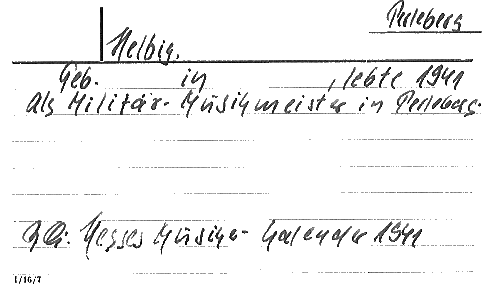 Perleberg
Helbig.
Geb. in , lebte 1941
als Militär-Musikmeister in Perleberg.
Hesses Musiker-Kalender 1941
1/16/7